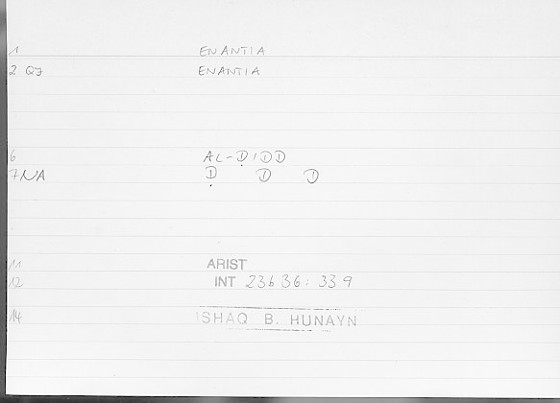 1 ENANTIA
2 QJ ENANTIA
6 AL-ḌIDD
7 NA Ḍ D D
11 ARIST
12 INT 23b36: 33.9
14 ISHAQ B. HUNAYN